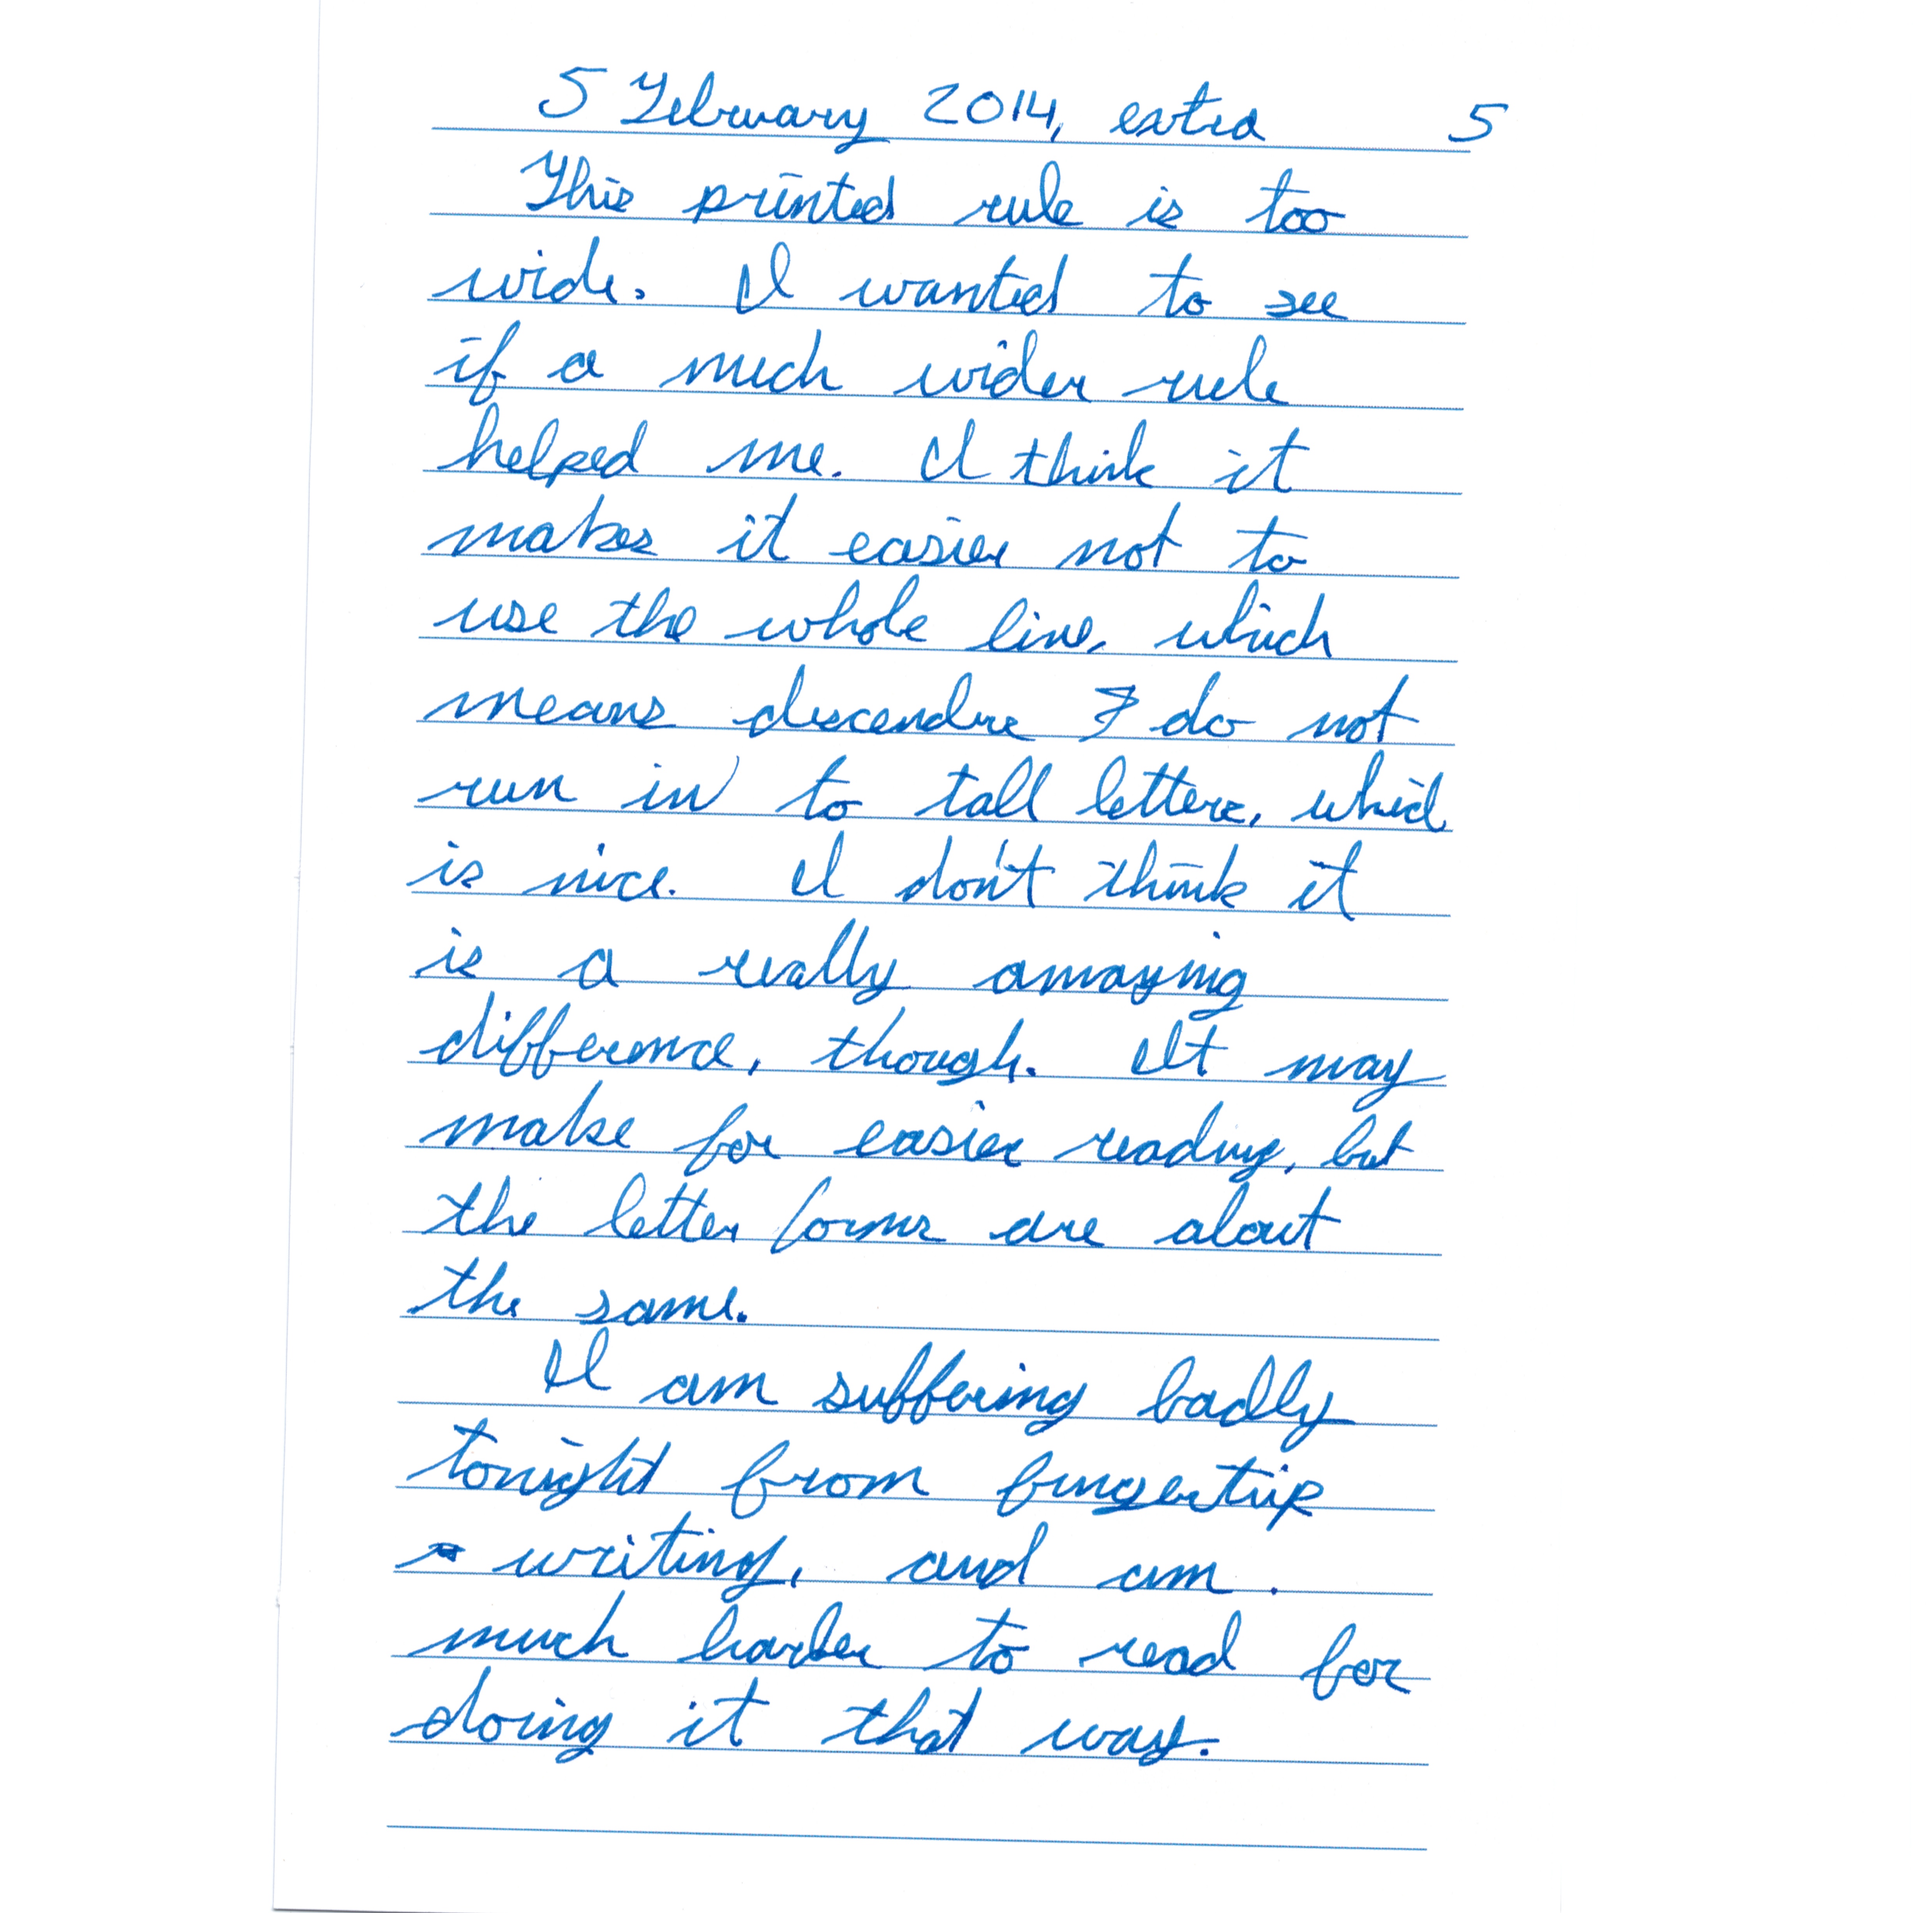 5 February 2014, extra 5
This printed rule is too
wide. I wanted to see
if a much wider rule
helped me. I think it
makes it easier not to
use the whole line, which
means descenders do not
run in to tall letters, which
is nice. I don't think it
is a really amazing
difference, though. It may
make for easier reading, but
the letter forms are about
the same.
I am suffering badly
tonight from fingertip
writing, and am
much harder to read for
doing it that way.